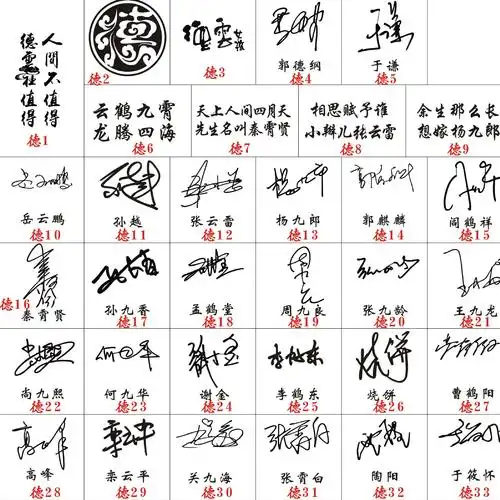 人間不值得
德雲社值得
德1
德
德2
德雲
德3
郭德纲
德4
于谦
德5
云鹤九霄
龙腾四海
德6
天上人间四月天
先生名叫秦霄贤
德7
相思赋予谁
小辫儿张云雷
德8
余生那么长
想嫁杨九郎
德9
岳云鹏
德10
孙越
德11
张云雷
德12
杨九郎
德13
郭麒麟
德14
阎鹤祥
德15
德16
秦霄贤
孙九香
德17
孟鹤堂
德18
周九良
德19
张九龄
德20
王九龙
德21
尚九熙
德22
何九华
德23
谢金
德24
李鹤东
德25
烧饼
烧饼
德26
曹鹤阳
德27
高峰
德28
栾云平
栾云平
德29
关九海
德30
张霄白
德31
陶阳
德32
于筱怀
德33